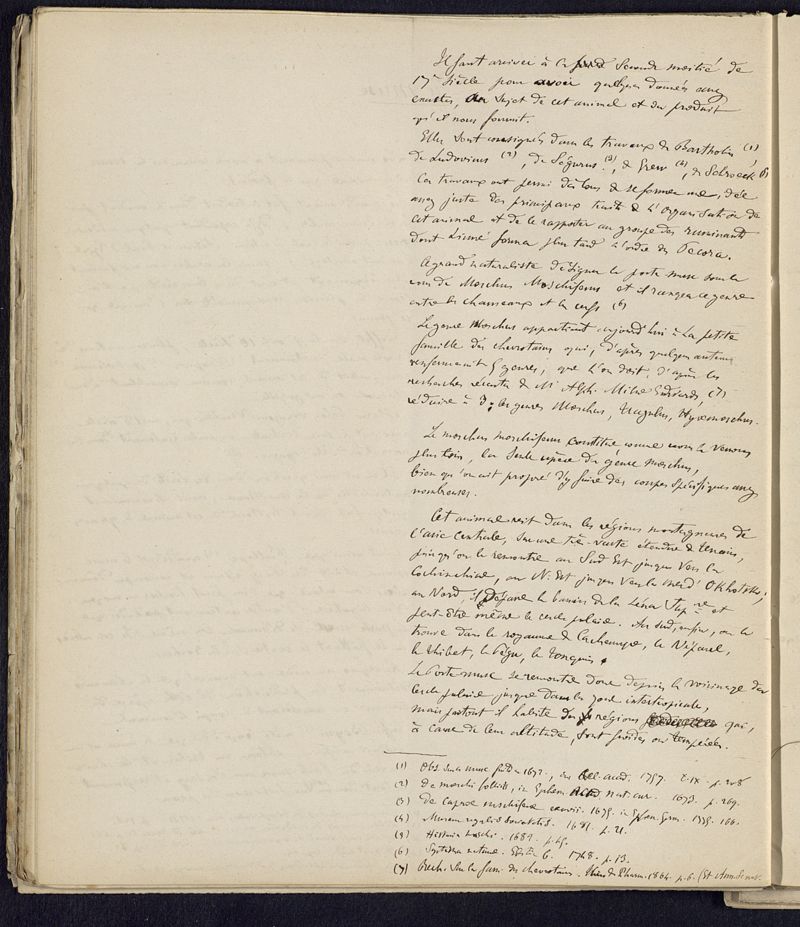 Il faut arriver à la seconde moitié de
17e siècle pour avoir quelques données assez
exactes, au sujet de cet animal et du produit
qu'il nous fournit.
Elles sont consignés dans les travaux de Bartholin (1)
de Ludovicus (2), de Ségerus (3), de Grew (4), de Schroeck (5)
Ces travaux ont permi dès lors de se former une idée
assez juste des principaux traits de l'organisation de
cet animal et de le rapporter au groupe des ruminants
dont Linné forma plus tard l'ordre des Pecora.
Ce grand naturaliste désigna le porte musc sous le
nom de Moschus Moschiferus et il rangea ce genre
entre les chameaux et les cerfs (6)
Le genre Moschus appartient aujourd'hui à la petite
famille des chevrotains qui, d'après quelques auteurs
renfermait 5 genres, que l'on doit, d'après les
recherches récentes de Mr Alph. Milne Edwards, (7)
réduire à 3; les genres Moschus, Tragulus, Hyæmoschus.
Le moschus moschiferus constitue, comme nous le verrons
plus loin, la seule espèce du genre moschus,
bien qu'on ait proposé d'y faire des coupes spécifiques assez
nombreuses.
Cet animal vit dans les régions montagneuses de
l'asie centrale, sur une très-vaste étendue de terrains,
puisqu'on le rencontre au Sud Est jusques vers la
Cochinchine, au N. Est jusques vers la mer d'Okhotsk;
au Nord, il dépasse le bassin de la Léna Supre et
peut-être même le cercle polaire. Au sud, enfin, on le
trouve dans le royaume de Cachemyre, le Népaul,
le Thibet, le Pégu, le Tonquin.
Le Porte musc se rencontre donc depuis le voisinage du
cercle polaire jusque dans la zone intertropicale,
mais partout il habite des régions qui,
à cause de leur altitude, sont froides ou tempérées.
(1) Obs. sur le musc, Coll. acad. 1757. t. IX. p. 208
(2) De moschi folliculis, in Ephem. Acad. nat. cur. 1673. p. 269.
(3) De capreæ moschiferæ 1675. in Ephem. Germ. 166.
(4) Museum regalis societatis. 1681. p. 21.
(5) Historia moschi. 1682. p. 45.
(6) Systema naturæ. Edit. 6. 1748. p. 13.
(7) Rech. sur la fam. des chevrotains. Thèse de Pharm. 1864. p. 6. (Et Ann. Sc. nat.